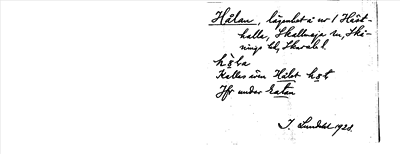 Hålan, lägenhet å nr 1 Håst-
halla, Skallmeja sn, Skå-
nings hd, Skarab. l.
Kallas även Hålet
Jfr under Katan
J. Lundahl 1921.